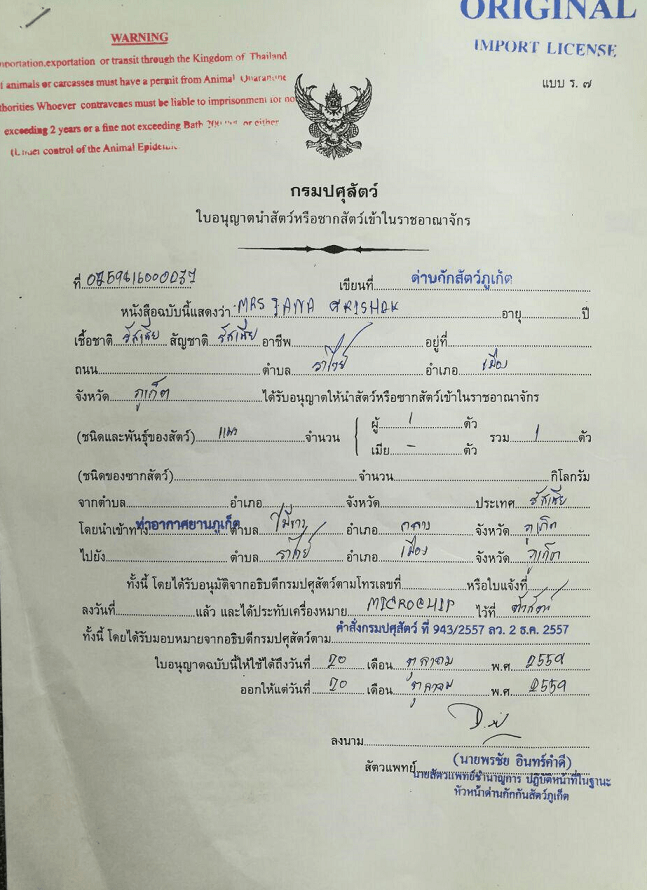 ORIGINAL
IMPORT LICENSE
WARNING
mportation,exportation or transit through the Kingdom of Thailand
f animals or carcasses must have a permit from Animal Quarantine
thorities Whoever contravenes must be liable to imprisonment for no
exceeding 2 years or a fine not exceeding Bath or either
(Under control of the Animal
แบบ ร. ๗
กรมปศุสัตว์
ใบอนุญาตนำสัตว์หรือซากสัตว์เข้าในราชอาณาจักร
ที่ เขียนที่ ด่านกักสัตว์ภูเก็ต
หนังสือฉบับนี้แสดงว่า MRS GRISHAK อายุ ปี
เชื้อชาติ รัสเซีย สัญชาติ รัสเซีย อาชีพ อยู่ที่
ถนน ตำบล ราไวย์ อำเภอ เมือง
จังหวัด ภูเก็ต ได้รับอนุญาตให้นำสัตว์หรือซากสัตว์เข้าในราชอาณาจักร
(ชนิดและพันธุ์ของสัตว์) แมว จำนวน ผู้ 1 ตัว รวม 1 ตัว
เมีย - ตัว
(ชนิดของซากสัตว์) จำนวน กิโลกรัม
จากตำบล อำเภอ จังหวัด ประเทศ รัสเซีย
โดยนำเข้าทาง ท่าอากาศยานภูเก็ต ตำบล ไม้ขาว อำเภอ ถลาง จังหวัด ภูเก็ต
ไปยัง ตำบล ราไวย์ อำเภอ เมือง จังหวัด ภูเก็ต
ทั้งนี้ โดยได้รับอนุมัติจากอธิบดีกรมปศุสัตว์ตามโทรเลขที่ หรือใบแจ้งที่
ลงวันที่ แล้ว และได้ประทับเครื่องหมาย MICROCHIP ไว้ที่ ตัวสัตว์
ทั้งนี้ โดยได้รับมอบหมายจากอธิบดีกรมปศุสัตว์ตาม คำสั่งกรมปศุสัตว์ ที่ 943/2557 ลว. 2 ธ.ค. 2557
ใบอนุญาตฉบับนี้ให้ใช้ได้ถึงวันที่ 20 เดือน ตุลาคม พ.ศ 2559
ออกให้แต่วันที่ 20 เดือน ตุลาคม พ.ศ 2559
ลงนาม
สัตวแพทย์ (นายพรชัย อินทร์คำดี)
นายสัตวแพทย์ชำนาญการ ปฏิบัติหน้าที่ในฐานะ
หัวหน้าด่านกักกันสัตว์ภูเก็ต